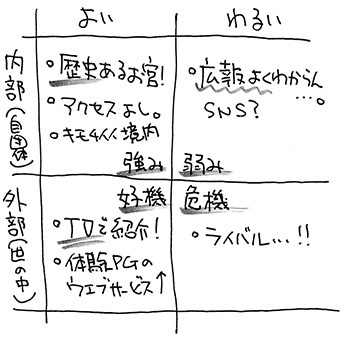 よい
わるい
内部(自団体)
・歴史あるお宮!
・アクセスよし。
・キモチイイ境内
強み
・広報よくわからん…。
SNS?
弱み
外部(世の中)
好機
・TVで紹介!
・体験PGの
ウェブサービス↑
危機
・ライバル…!!